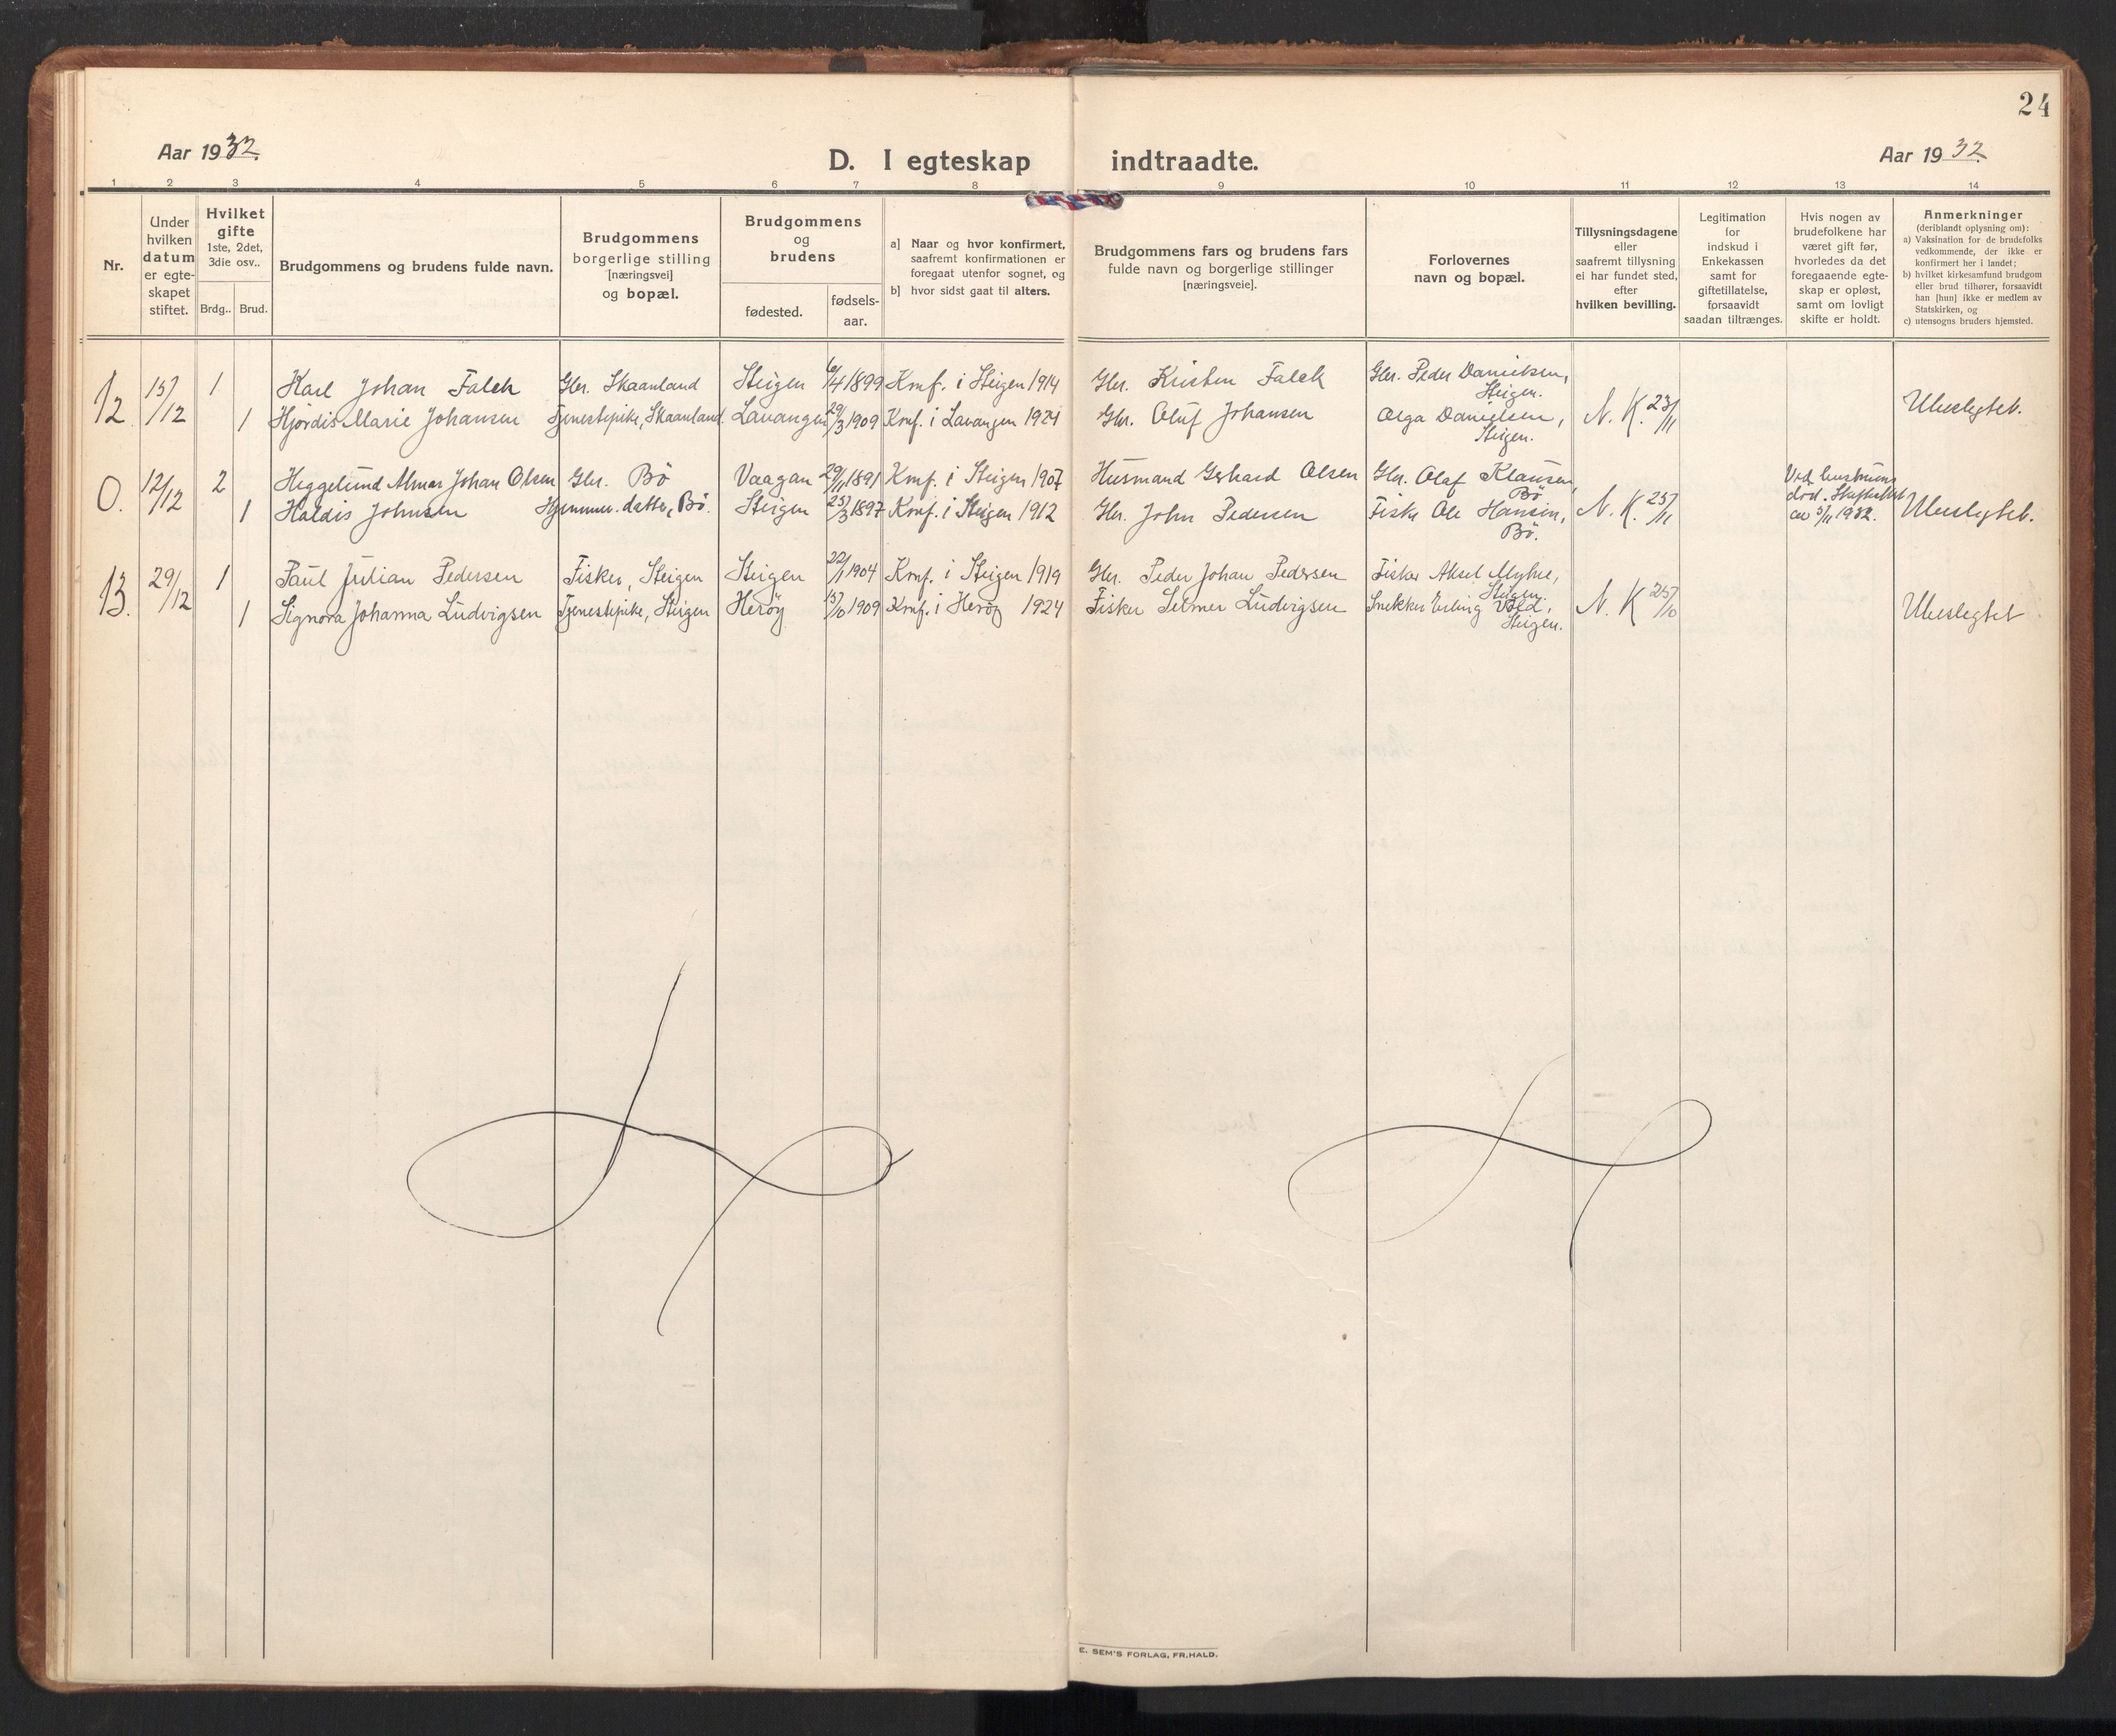 24
Aar 1932.
D. I egteskap indtraadte.
Aar 1932
1 2 3 4 5 6 7 8 9 10 11 12 13 14
Nr.
Under
hvilken
datum
er egte-
skapet
stiftet.
Hvilket
gifte
1ste, 2det,
3die osv..
Brdg.. Brud.
Brudgommens og brudens fulde navn.
Brudgommens
borgerlige stilling
[næringsvei]
og bopæl.
Brudgommens
og
brudens
fødested.
fødsels-
aar.
a] Naar og hvor konfirmert,
saafremt konfirmationen er
foregaat utenfor sognet, og
b] hvor sidst gaat til alters.
Brudgommens fars og brudens fars
fulde navn og borgerlige stillinger
[næringsveie].
Forlovernes
navn og bopæl.
Tillysningsdagene
eller
saafremt tillysning
ei har fundet sted,
efter
hvilken bevilling.
Legitimation
for
indskud i
Enkekassen
samt for
giftetillatelse,
forsaavidt
saadan tiltrænges.
Hvis nogen av
brudefolkene har
været gift før,
hvorledes da det
foregaaende egte-
skap er opløst,
samt om lovligt
skifte er holdt.
Anmerkninger
(deriblandt oplysning om):
a) Vaksination for de brudefolks
vedkommende, der ikke er
konfirmert her i landet;
b) hvilket kirkesamfund brudgom
eller brud tilhører, forsaavidt
han [hun] ikke er medlem av
Statskirken, og
c) utensogns bruders hjemsted.
12 15/12 1 Karl Johan Falch Gbr. Skaanland Steigen 6/4 1899 Konf. i Steigen 1914 Gbr. Kristen Falch Gbr. Peder Danielsen, Steigen.
1 Hjördis Marie Johansen Tjenestepike, Skaanland. Lavangen 29/3 1909 Konf. i Lavangen 1924 Gbr. Oluf Johansen Olga Danielsen, Steigen. N. K. 23/11 Ubeslegtet.
0. 12/12 2 Heggelund Almar Johan Olsen Gbr. Bö Vaagan 29/11 1891 Konf. i Steigen 1907 Husmand Gerhard Olsen Gbr. Olaf Klausen, Bö
1 Haldis Johnsen Hjemmev. datter, Bö. Steigen 25/3 1897 Konf. i Steigen 1912 Gbr. John Pedersen Fisker Ole Hansen, Bö. N. K. 25/11 Ved hustruens
död. Skifteattest
av 5/11 1932. Ubeslegtet.
13. 29/12 1 Paul Julian Pedersen Fisker, Steigen Steigen 22/1 1904 Konf. i Steigen 1919 Gbr. Peder Johan Pedersen Fisker Aksel Myhre, Steigen.
1 Signora Johanna Ludvigsen Tjenestepike, Steigen Heröy 15/10 1909 Konf. i Heröy 1924 Fisker Selmer Ludvigsen Snekker Erling Vold, Steigen. N. K 25/10 Ubeslegtet
E. SEM'S FORLAG, FR.HALD.